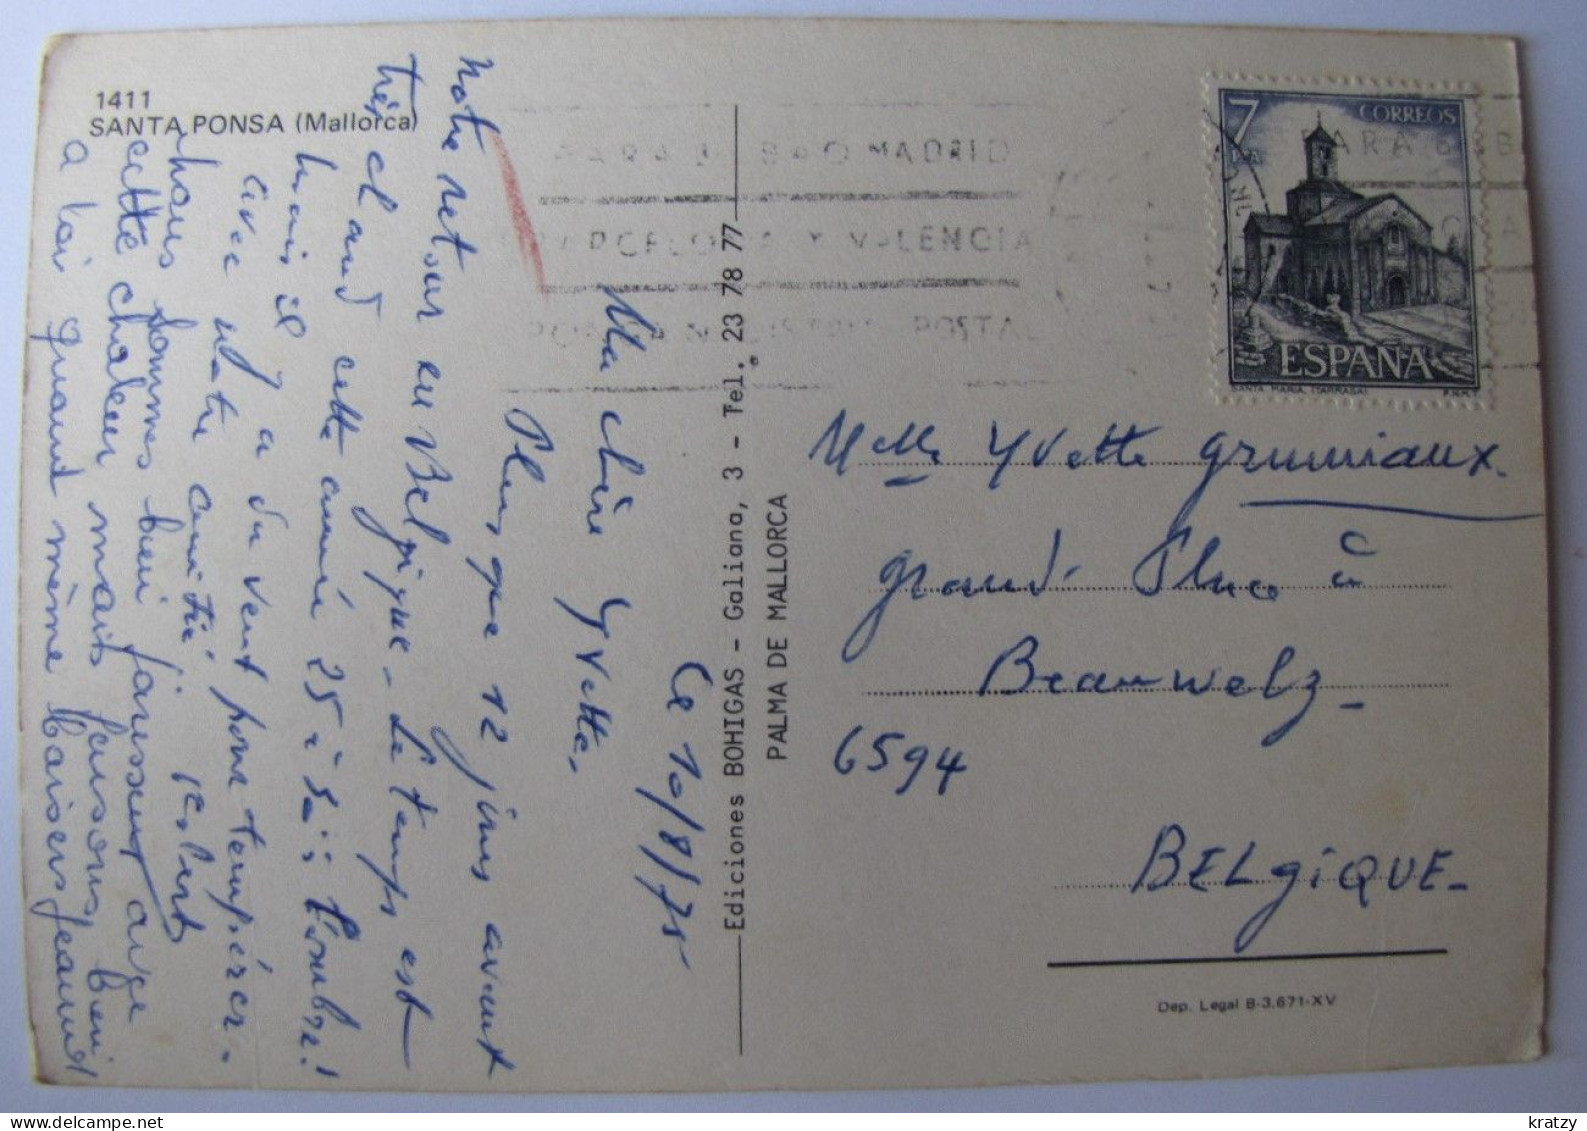 1411
SANTA PONSA (Mallorca)
Ce 10/8/75
Ma chère Yvette.
Plus que 12 jours avant
notre retour en Belgique - Le temps est
très chaud cette année 35 à l'ombre!
mais il y a du vent pour tempérer.
avec notre amitié,
nous sommes bien jaunis avec
cette chaleur mais pensons bien
a toi quand même baisers Jeannot
Ediciones BOHIGAS - Galiana, 3 - Tel. 23 78 77
PALMA DE MALLORCA
PARA BILBAO MADRID
BARCELONA Y VALENCIA
PONGA N DISTRITO POSTAL
7
PTA
CORREOS
ESPAÑA
SANTA MARIA (TARRASA)
F.N.M.T.
Melle Yvette Grumiaux.
Grand' Place à
Beauwelz
6594
BELGIQUE-
Dep. Legal B-3.671-XV
kratzy